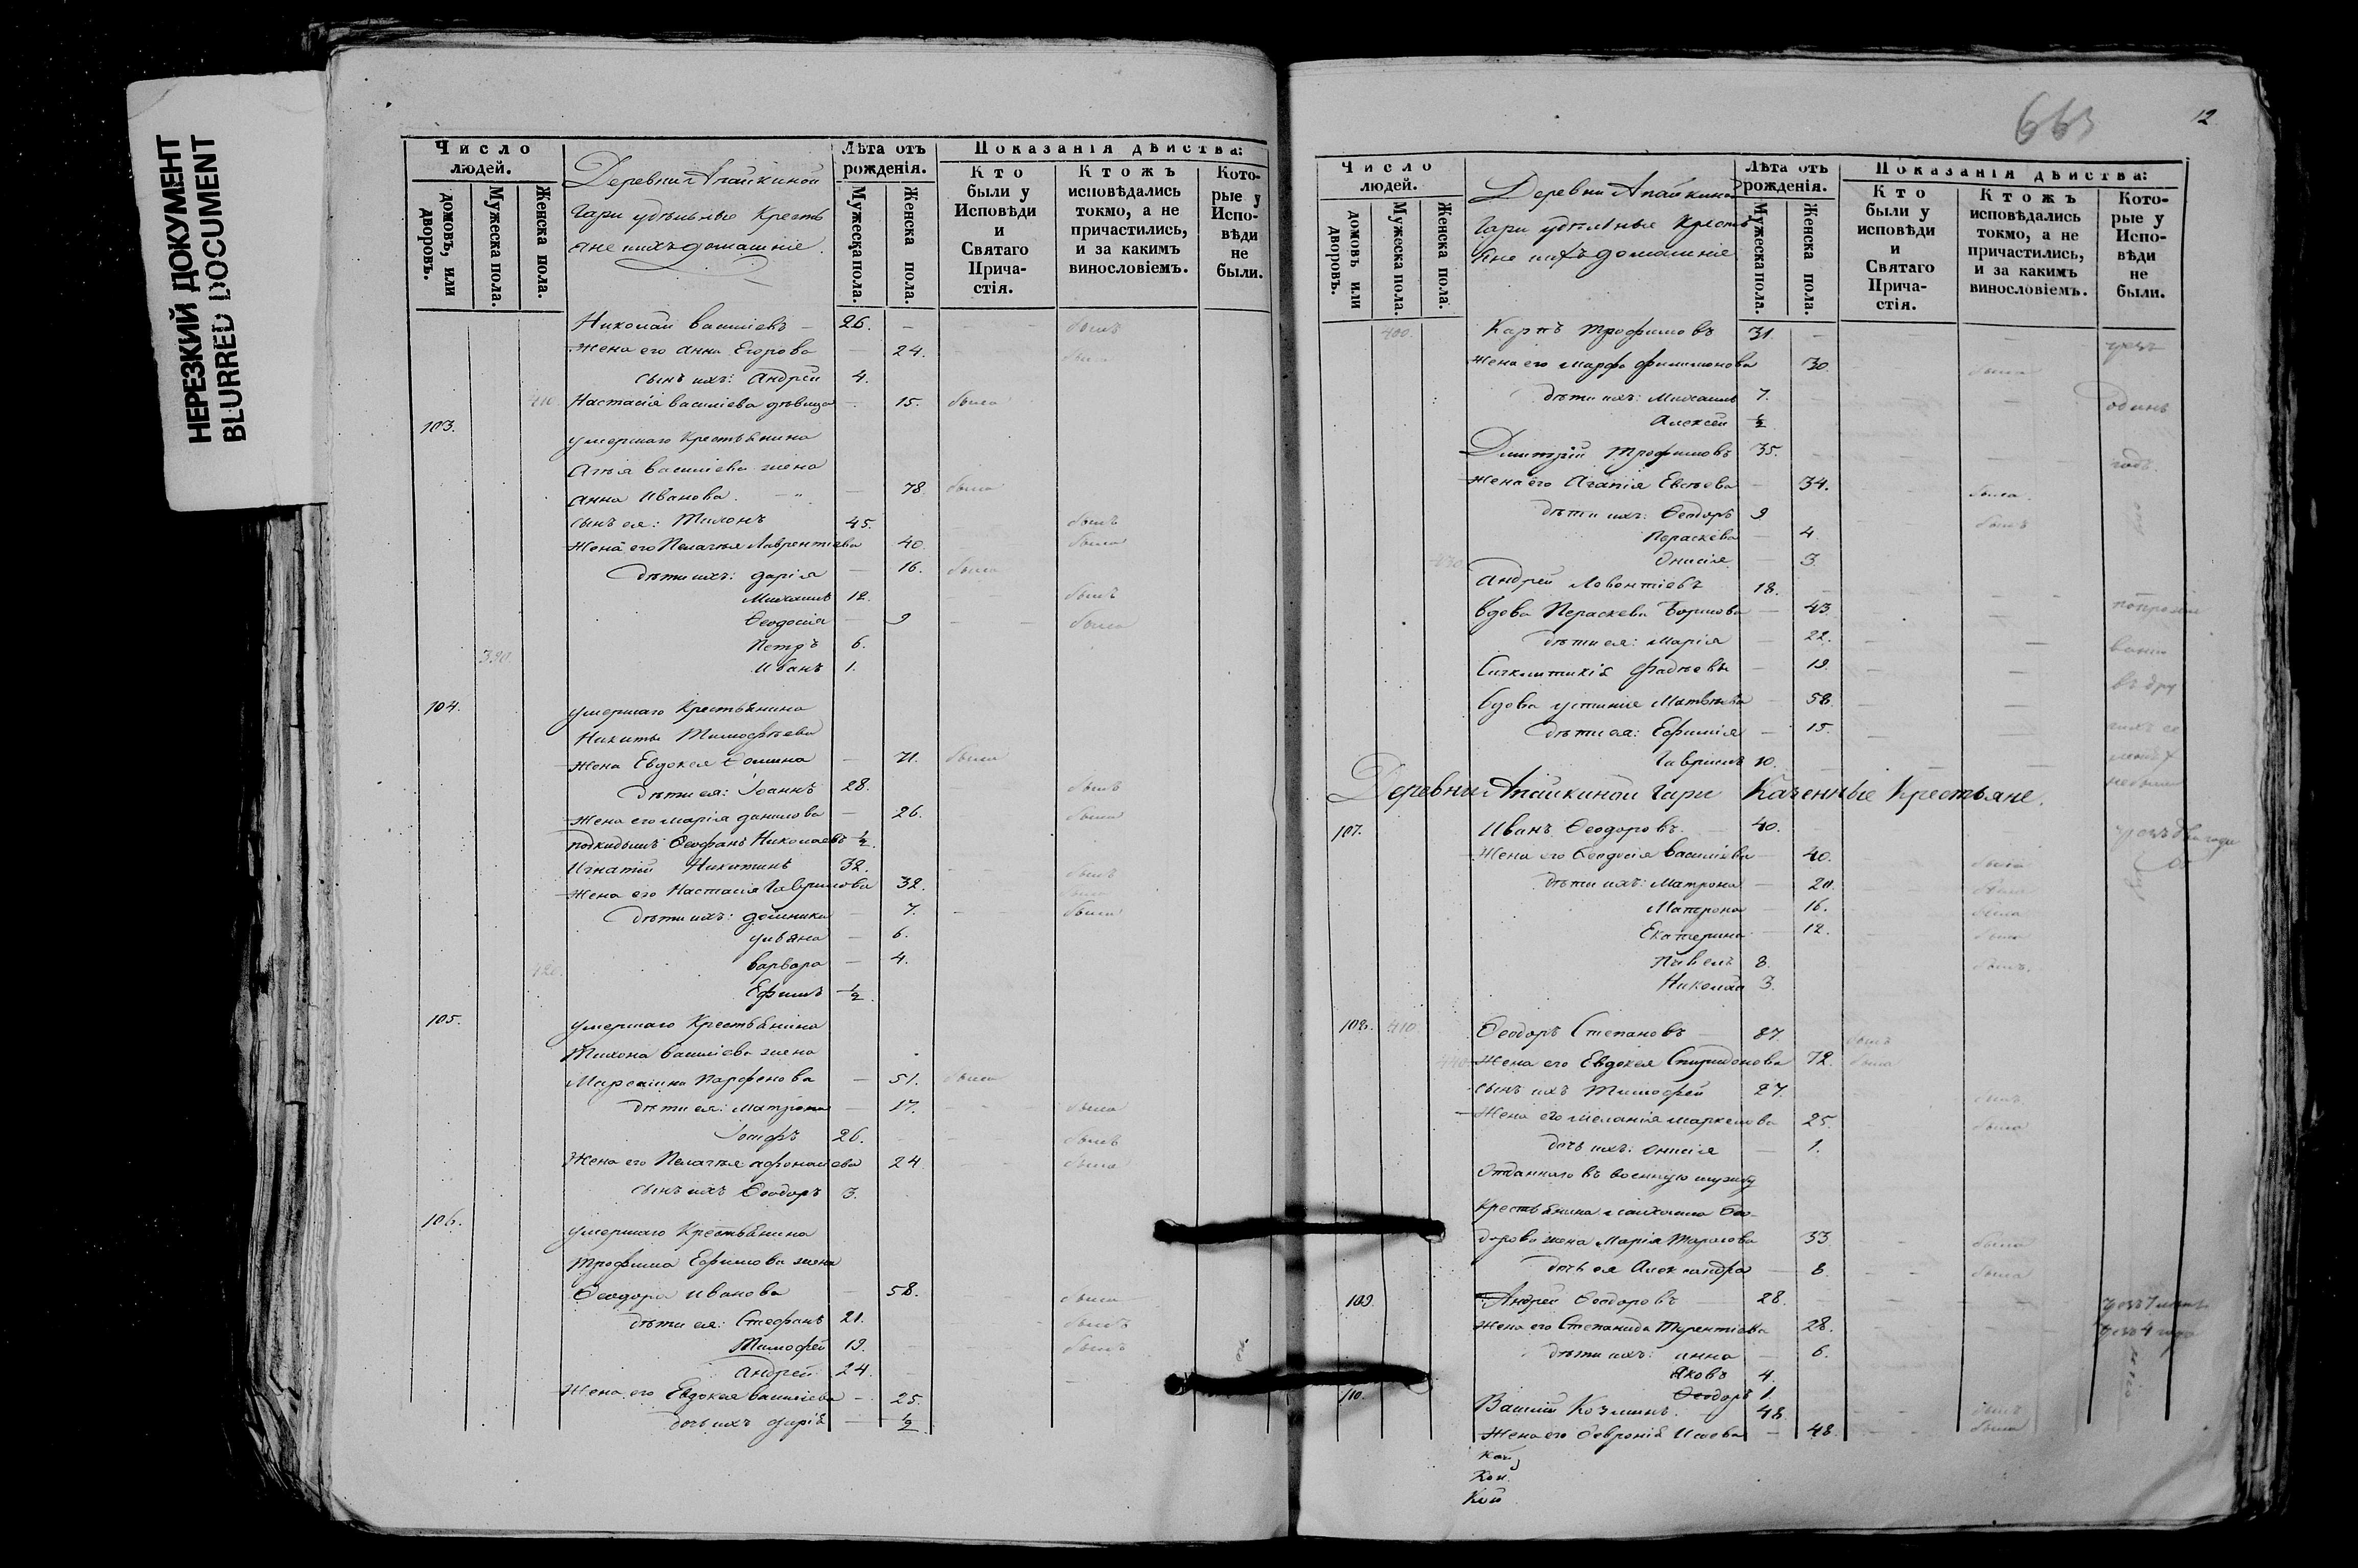 НЕРЕЗКИЙ ДОКУМЕНТ
BLURRED DOCUMENT
Число людей.
домовъ, или дворовъ.
Мужеска пола.
Женска пола.
Деревни Апайкиной
Гари удѣльные Кресть
яне и ихъ домашніе.
Лѣта отъ рожденія.
Мужеска пола.
Женска пола.
Показанія дѣйства:
Кто были у Исповѣди и Святаго Прича-стія.
Ктожъ исповѣдались токмо, а не причастились, и за какимъ винословіемъ.
Кото-рые у Испо-вѣди не были.
Николай Василіевъ — 26. — былъ
Жена его Анна Егорова — 24.
сынъ ихъ: Андрей 4.
Настасія Василіева дѣвица — 15. была
103. умершаго Крестьянина
Василіева жена
Анна Иванова. — 78. была
сынъ ея: Тихонъ 45. былъ
Жена его Пелагѣя Лаврентіева 40. была
дѣти ихъ: Дарія — 16. была
Михаилъ 12. былъ
Ѳеодосія — 9 — была
Петръ 6.
390. Иванъ 1.
104. умершаго Крестьянина
Никиты Тимофѣева
Жена Евдокея Ѳомина — 71. была
дѣти ея: Іоаннъ 28. былъ
Жена его Марія Данилова — 26. была
подкидышъ Ѳеофанъ Николаевъ ½.
Игнатій Никитинъ 32. былъ
Жена его Настасія Гаврилова 32. была
дѣти ихъ: Домника — 7. — была
Ульяна — 6.
420. Варвара — 4.
Ефимъ ½.
105. умершаго Крестьянина
Тихона Василіева жена
Парфенова — 51. была
дѣти ея: Матрона — 17. была
Іосифъ 26. былъ
Жена его Пелагѣя Афонасіева 24 была
сынъ ихъ Ѳеодоръ 3.
106. умершаго Крестьянина
Трофима Ефимова жена
Ѳеодора Иванова — 58. была
дѣти ея: Стефанъ 21. былъ
Тимофей 19. былъ
Андрей 24.
Жена его Евдокея Василіева — 25.
дочь ихъ Дарія — ½
663
12
Число людей.
домовъ или дворовъ.
Мужеска пола.
Женска пола.
Деревни Апайкиной
Гари удѣльные Кресть
яне и ихъ домашніе
Лѣта отъ рожденія.
Мужеска пола.
Женска пола.
Показанія дѣйства:
Кто были у исповѣди и Святаго Прича-стія.
Ктожъ исповѣдались токмо, а не причастились, и за какимъ винословіемъ.
Кото-рые у Испо-вѣди не были.
400. Карпъ Трофимовъ 31. —
Жена его Марфа Филимонова 30. была
дѣти ихъ: Михаилъ 7. одинъ
Алексей ½
Димитрій Трофимовъ 35. годъ.
Жена его Агапія Евсѣева — 34. была.
дѣти ихъ: Ѳеодоръ 9 былъ
Пераскева — 4.
430 Онисія — 3.
Андрей Леонтіевъ 18.
вдова Пераскева — 43.
дѣти ея: Марія — 22.
Синклитикія Фадѣевы — 19.
вдова Устинія Матвѣева — 58.
дѣти ея: Ефимія — 15.
Гавріилъ 10.
Деревни Апайкиной Гари Казенные Крестьяне.
107. Иванъ Ѳеодоровъ. — 40.
Жена его Ѳеодосія Василіева — 40. была
дѣти ихъ: Матрона — 20. была
Матрона — 16. была
Екатерина — 12. была
Павелъ 8. былъ.
Николай 3.
108. 410. Ѳеодоръ Степановъ — 87. былъ
440 Жена его Евдокея Спиридонова 72. была
сынъ ихъ Тимофей 27. былъ
Жена его Меланія Маркелова 25. была
дочь ихъ: Онисія — 1.
Отданнаго въ военную службу
Крестьянина Михаила Ѳео-
дорова жена Марія Тарасова 33. была
дочь ея Александра — 8. была
109. Андрей Ѳеодоровъ — 28.
Жена его Степанида Терентіева 28.
дѣти ихъ: Анна — 6.
Яковъ 4.
Ѳеодоръ 1
110. Василій Козминъ. — 48. былъ
Жена его Ѳевронія Исаева — 48. была